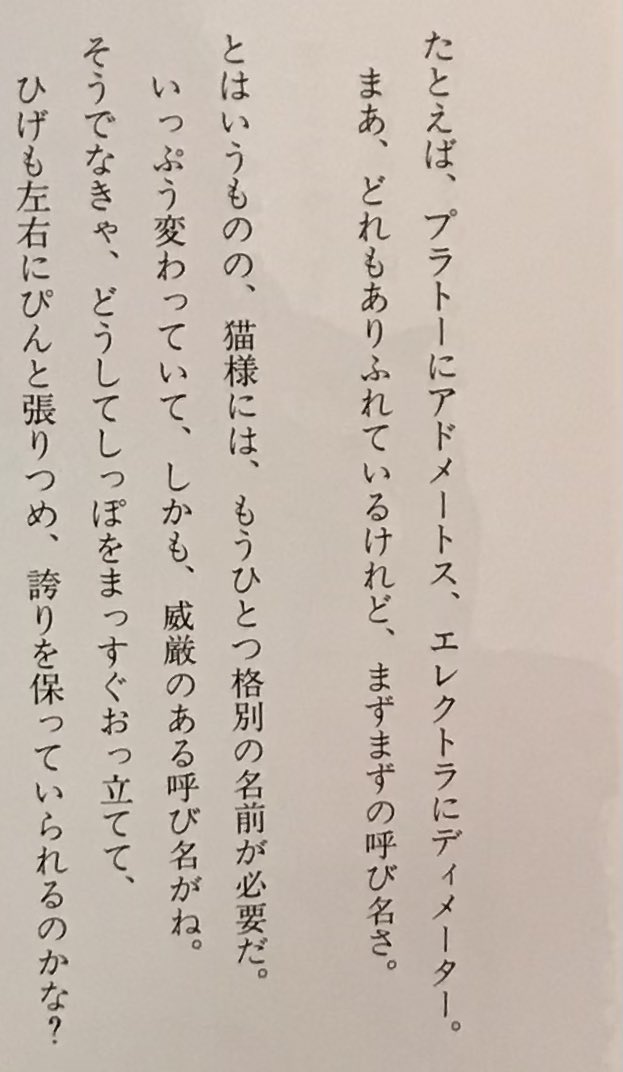 たとえば、プラトーにアドメートス、エレクトラにディメーター。
まあ、どれもありふれているけれど、まずまずの呼び名さ。
とはいうものの、猫様には、もうひとつ格別の名前が必要だ。
いっぷう変わっていて、しかも、威厳のある呼び名がね。
そうでなきゃ、どうしてしっぽをまっすぐおっ立てて、
ひげも左右にぴんと張りつめ、誇りを保っていられるのかな？